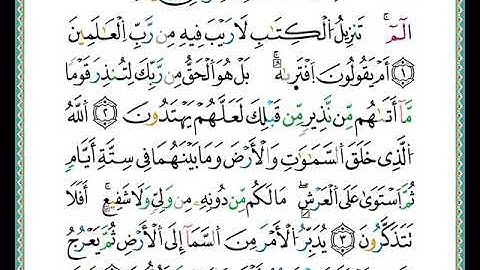 الٓمٓ ۚ تَنزِيلُ ٱلْكِتَٰبِ لَا رَيْبَ فِيهِ مِن رَّبِّ ٱلْعَٰلَمِينَ
۝١ أَمْ يَقُولُونَ ٱفْتَرَىٰهُ ۚ بَلْ هُوَ ٱلْحَقُّ مِن رَّبِّكَ لِتُنذِرَ قَوْمًا
مَّآ أَتَىٰهُم مِّن نَّذِيرٍ مِّن قَبْلِكَ لَعَلَّهُمْ يَهْتَدُونَ ۝٢ ٱللَّهُ
ٱلَّذِى خَلَقَ ٱلسَّمَٰوَٰتِ وَٱلْأَرْضَ وَمَا بَيْنَهُمَا فِى سِتَّةِ أَيَّامٍ
ثُمَّ ٱسْتَوَىٰ عَلَى ٱلْعَرْشِ ۖ مَا لَكُم مِّن دُونِهِۦ مِن وَلِىٍّ وَلَا شَفِيعٍ ۚ أَفَلَا
تَتَذَكَّرُونَ ۝٣ يُدَبِّرُ ٱلْأَمْرَ مِنَ ٱلسَّمَآءِ إِلَى ٱلْأَرْضِ ثُمَّ يَعْرُجُ